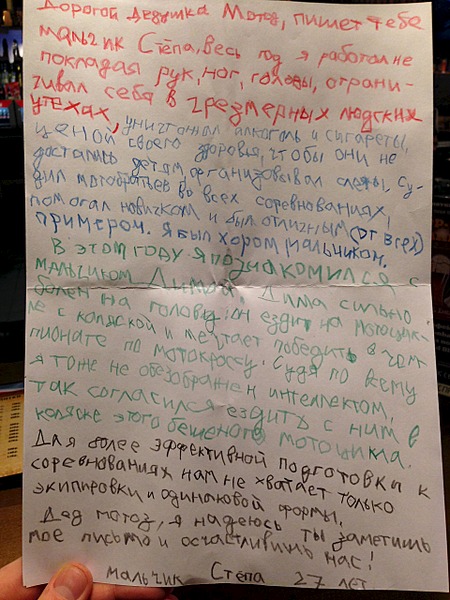 Дорогой дедушка Мотоз, пишет тебе
мальчик Стёпа, весь год я работал не
покладая рук, ног, головы, ограни-
чивал себя в чрезмерных людских
утехах, уничтожал алкоголь и сигареты,
ценой своего здоровья, чтобы они не
достались детям, организовывал слёты, су-
дил мотобратьев во всех соревнованиях,
помогал новичком и был отличным (от всех)
примером. Я был хорошмальчиком.
В этом году я познакомился с
мальчиком Димой. Дима сильно
болен на голову: он ездит на мотоцик-
ле с коляской и мечтает победить в чем-
пионате по мотокроссу. Судя по всему
я тоже не обезображен интеллектом,
так согласился ездить с ним в
коляске этого бешеного мотоцикла.
Для более эффективной подготовки к
соревнованиях нам не хватает только
экипировки и одинаковой формы.
Дед мотоз, я надеюсь ты заметишь
мое письмо и осчастливишь нас!
мальчик Стёпа 27 лет